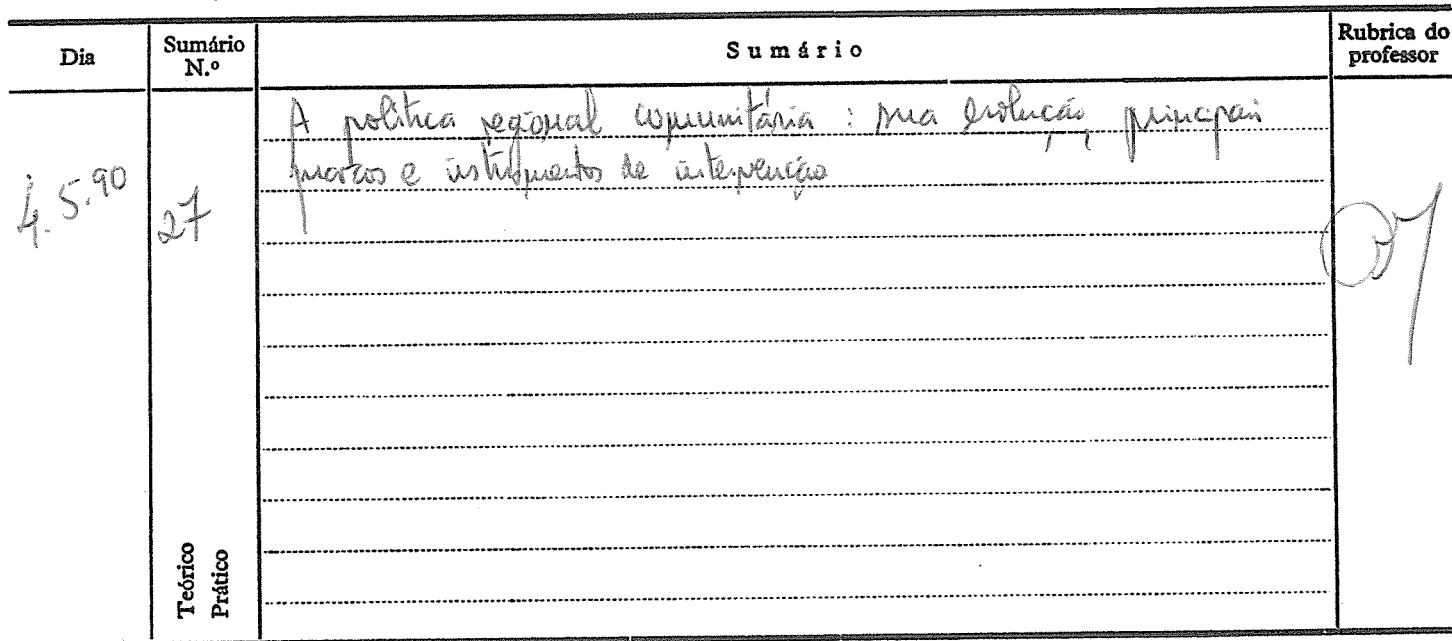 Dia
Sumário N.º
Sumário
Rubrica do professor
4.5.90
27
A política regional comunitária : sua evolução, principais
marcos e instrumentos de intervenção
Teórico
Prático